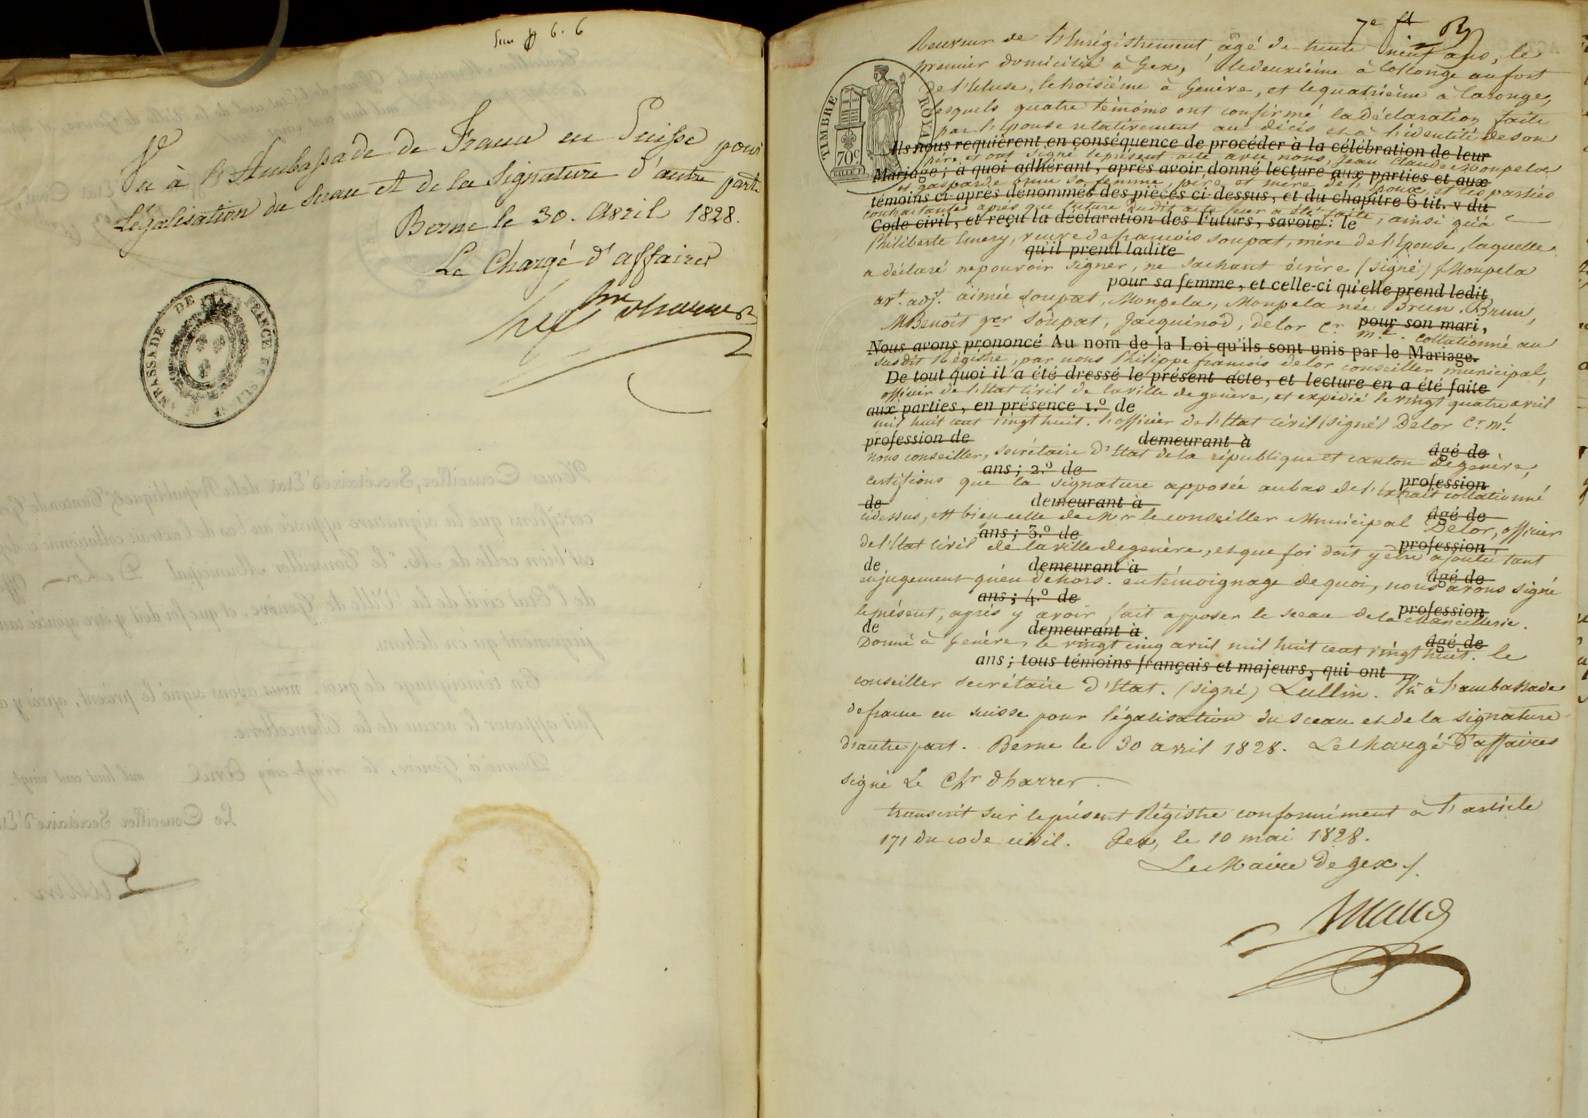 Vu à l'Ambassade de France en Suisse pour
Légalisation du Sceau et de la Signature d'autre part.
Berne le 30. Avril 1828.
Le Chargé d'affaires
AMBASSADE DE FRANCE EN SUISSE
7e ft
Receveur de l'Enrégistrement, âgé de trente neuf ans, le
premier domicilié à Gex, le deuxième à Collonge au fort
de l'Ecluse, le troisième à Genève, et le quatrième à
lesquels quatre témoins ont confirmé la déclaration faite
par l'Epouse relativement au décès et à l'identité de son
TIMBRE ROYAL
70c
Ils nous requièrent en conséquence de procéder à la célébration de leur
père, et ont signé le présent acte avec nous, Jean Claude Monpela
Mariage; à quoi adhérant, après avoir donné lecture aux parties et aux
et gasparde Brun sa femme, père et mère de l'Epoux, et les parties
témoins ci après dénommés des pièces ci dessus, et du chapitre 6 tit. v du
contractantes après que lecture du dit acte leur a été faite, ainsi qu'à
Code civil, et reçu la déclaration des Futurs, savoir: le
Philiberte Emery, veuve de françois Soupat, mère de l'Epouse, laquelle
qu'il prend ladite
a déclaré ne pouvoir signer, ne sachant écrire (signé)
pour sa femme, et celle-ci qu'elle prend ledit
aimée Soupat, Monpela, Monpela née Brun, Brun,
MBenoit Soupat, Jacquinod, Delor Cr. m.l collationné au
pour son mari,
Nous avons prononcé Au nom de la Loi qu'ils sont unis par le Mariage.
susdit Régistre, par nous Philippe françois Delor conseiller municipal,
De tout quoi il a été dressé le présent acte, et lecture en a été faite
officier de l'Etat Civil de la ville de genève, et expédié le vingt quatre avril
aux parties, en présence 1.º de
mil huit cent vingt huit. l'officier de l'Etat civil (signé) Delor Cr. m.l
profession de demeurant à âgé de
nous conseiller, secrétaire d'Etat de la république et canton de genève,
ans; 2.º de profession
certifions que la signature apposée au bas de l'Extrait collationné
de demeurant à âgé de
cidessus, est bien celle de Mr le conseiller Municipal Delor, officier
ans; 3.º de profession
de l'Etat Civil de la ville de genève, et que foi doit y être ajoutée tant
de demeurant à âgé de
en jugement qu'en dehors. en témoignage de quoi, nous avons signé
ans; 4.º de profession
le présent, après y avoir fait apposer le sceau de la Chancellerie.
de demeurant à âgé de
Donné à Genève, le vingt cinq avril mil huit cent vingt huit. le
ans; tous témoins français et majeurs, qui ont
conseiller secrétaire d'Etat. (signé) Lullin. Vu à l'ambassade
de france en Suisse pour légalisation du sceau et de la signature
d'autre part. Berne le 30 avril 1828. Le chargé d'affaires
signé Le Chr dharrer.
transcrit sur le présent Régistre conformément à l'article
171 du code civil. Gex, le 10 mai 1828.
Le Maire de gex